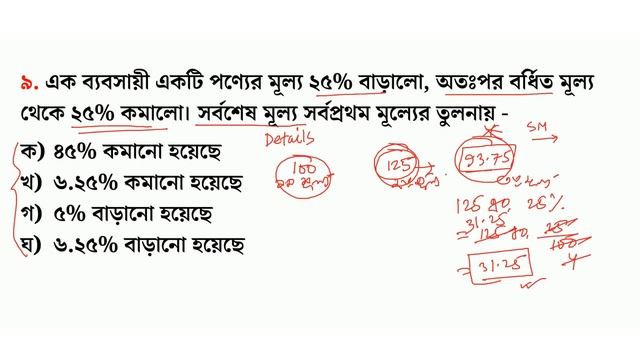 ৯. এক ব্যবসায়ী একটি পণ্যের মূল্য ২৫% বাড়ালো, অতঃপর বর্ধিত মূল্য
থেকে ২৫% কমালো। সর্বশেষ মূল্য সর্বপ্রথম মূল্যের তুলনায় -
ক) ৪৫% কমানো হয়েছে
খ) ৬.২৫% কমানো হয়েছে
গ) ৫% বাড়ানো হয়েছে
ঘ) ৬.২৫% বাড়ানো হয়েছে
Details
100
125
93.75
SM
125 এর 25%
31.25
= 125 এর 25/100
4
= 31.25